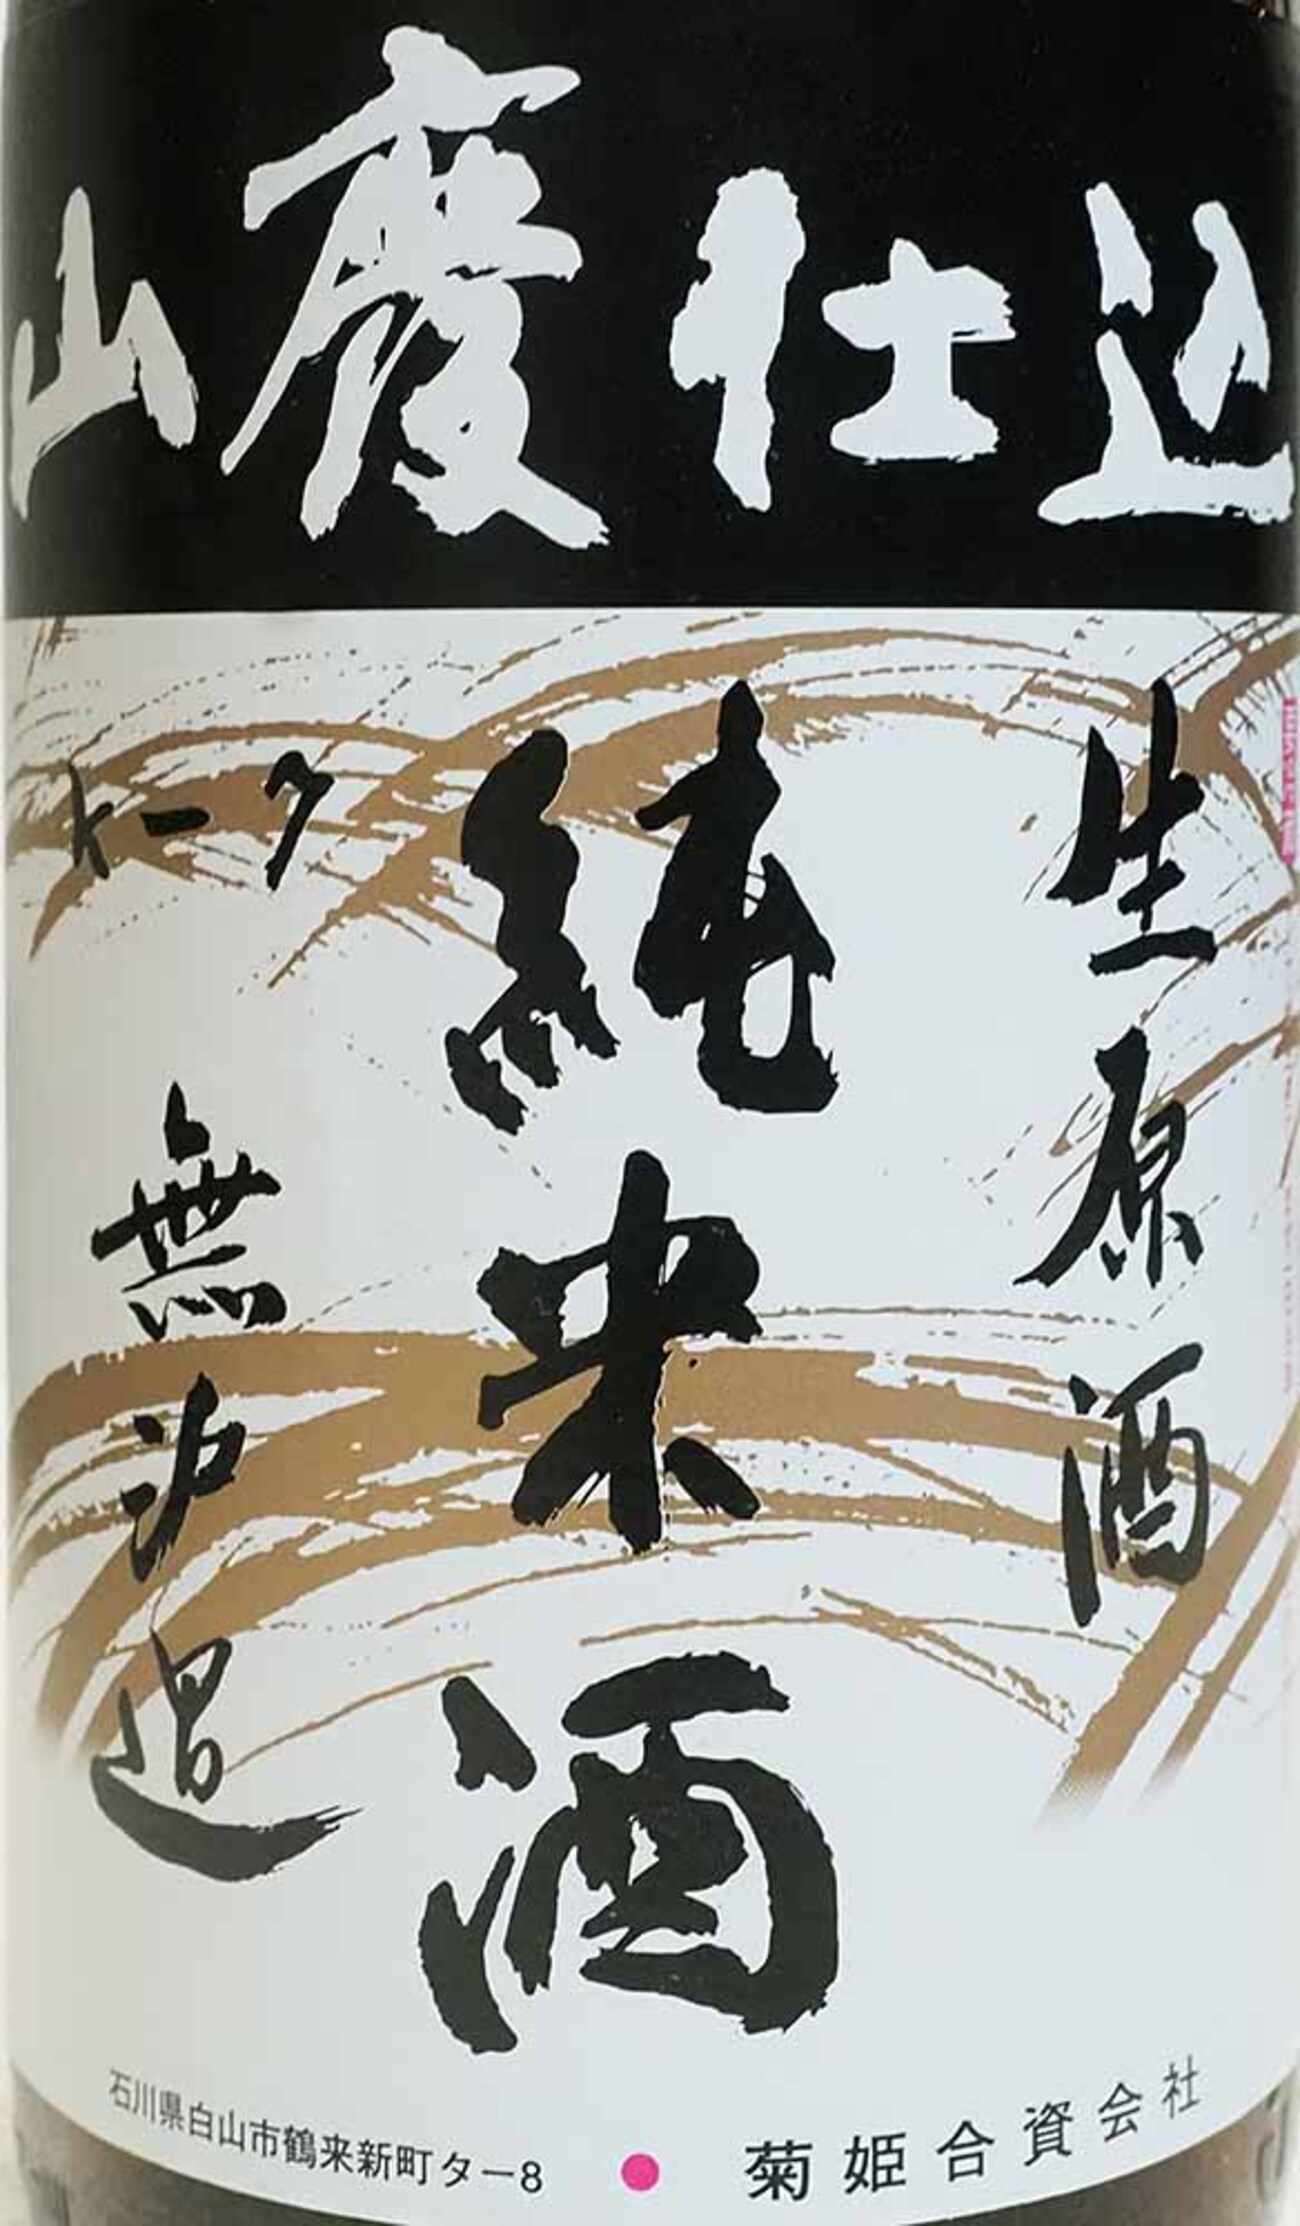 山廃仕込
生原酒
純米酒
k-7
無沪過
石川県白山市鶴来新町タ-8 ● 菊姫合資会社